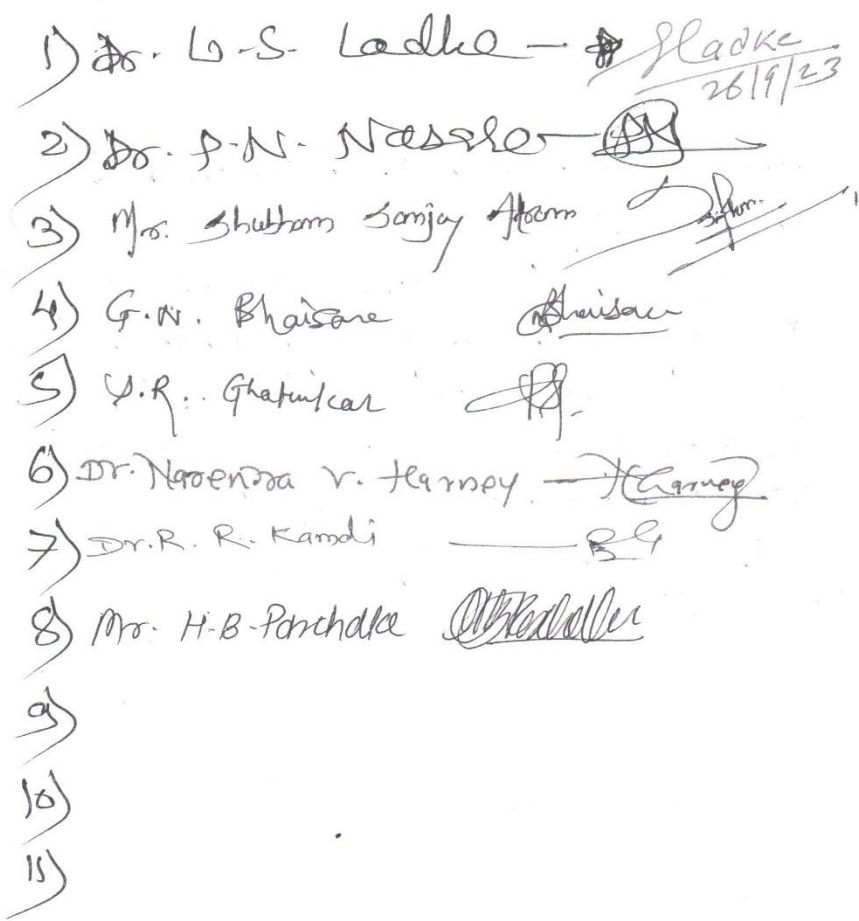 1) Dr. L.S. Ladke - Sladke
26/9/23
2) Dr. P.N. Nasare
3) Mr. Shubham Sanjay Atram
4) G.N. Bhaisare Bhaisare
5) Y.R. Ghatuikar
6) Dr. Narendra V. Harney - Harney
7) Dr. R. R. Kamdi
8) Mr. H.B. Panchalke
9)
10)
11)